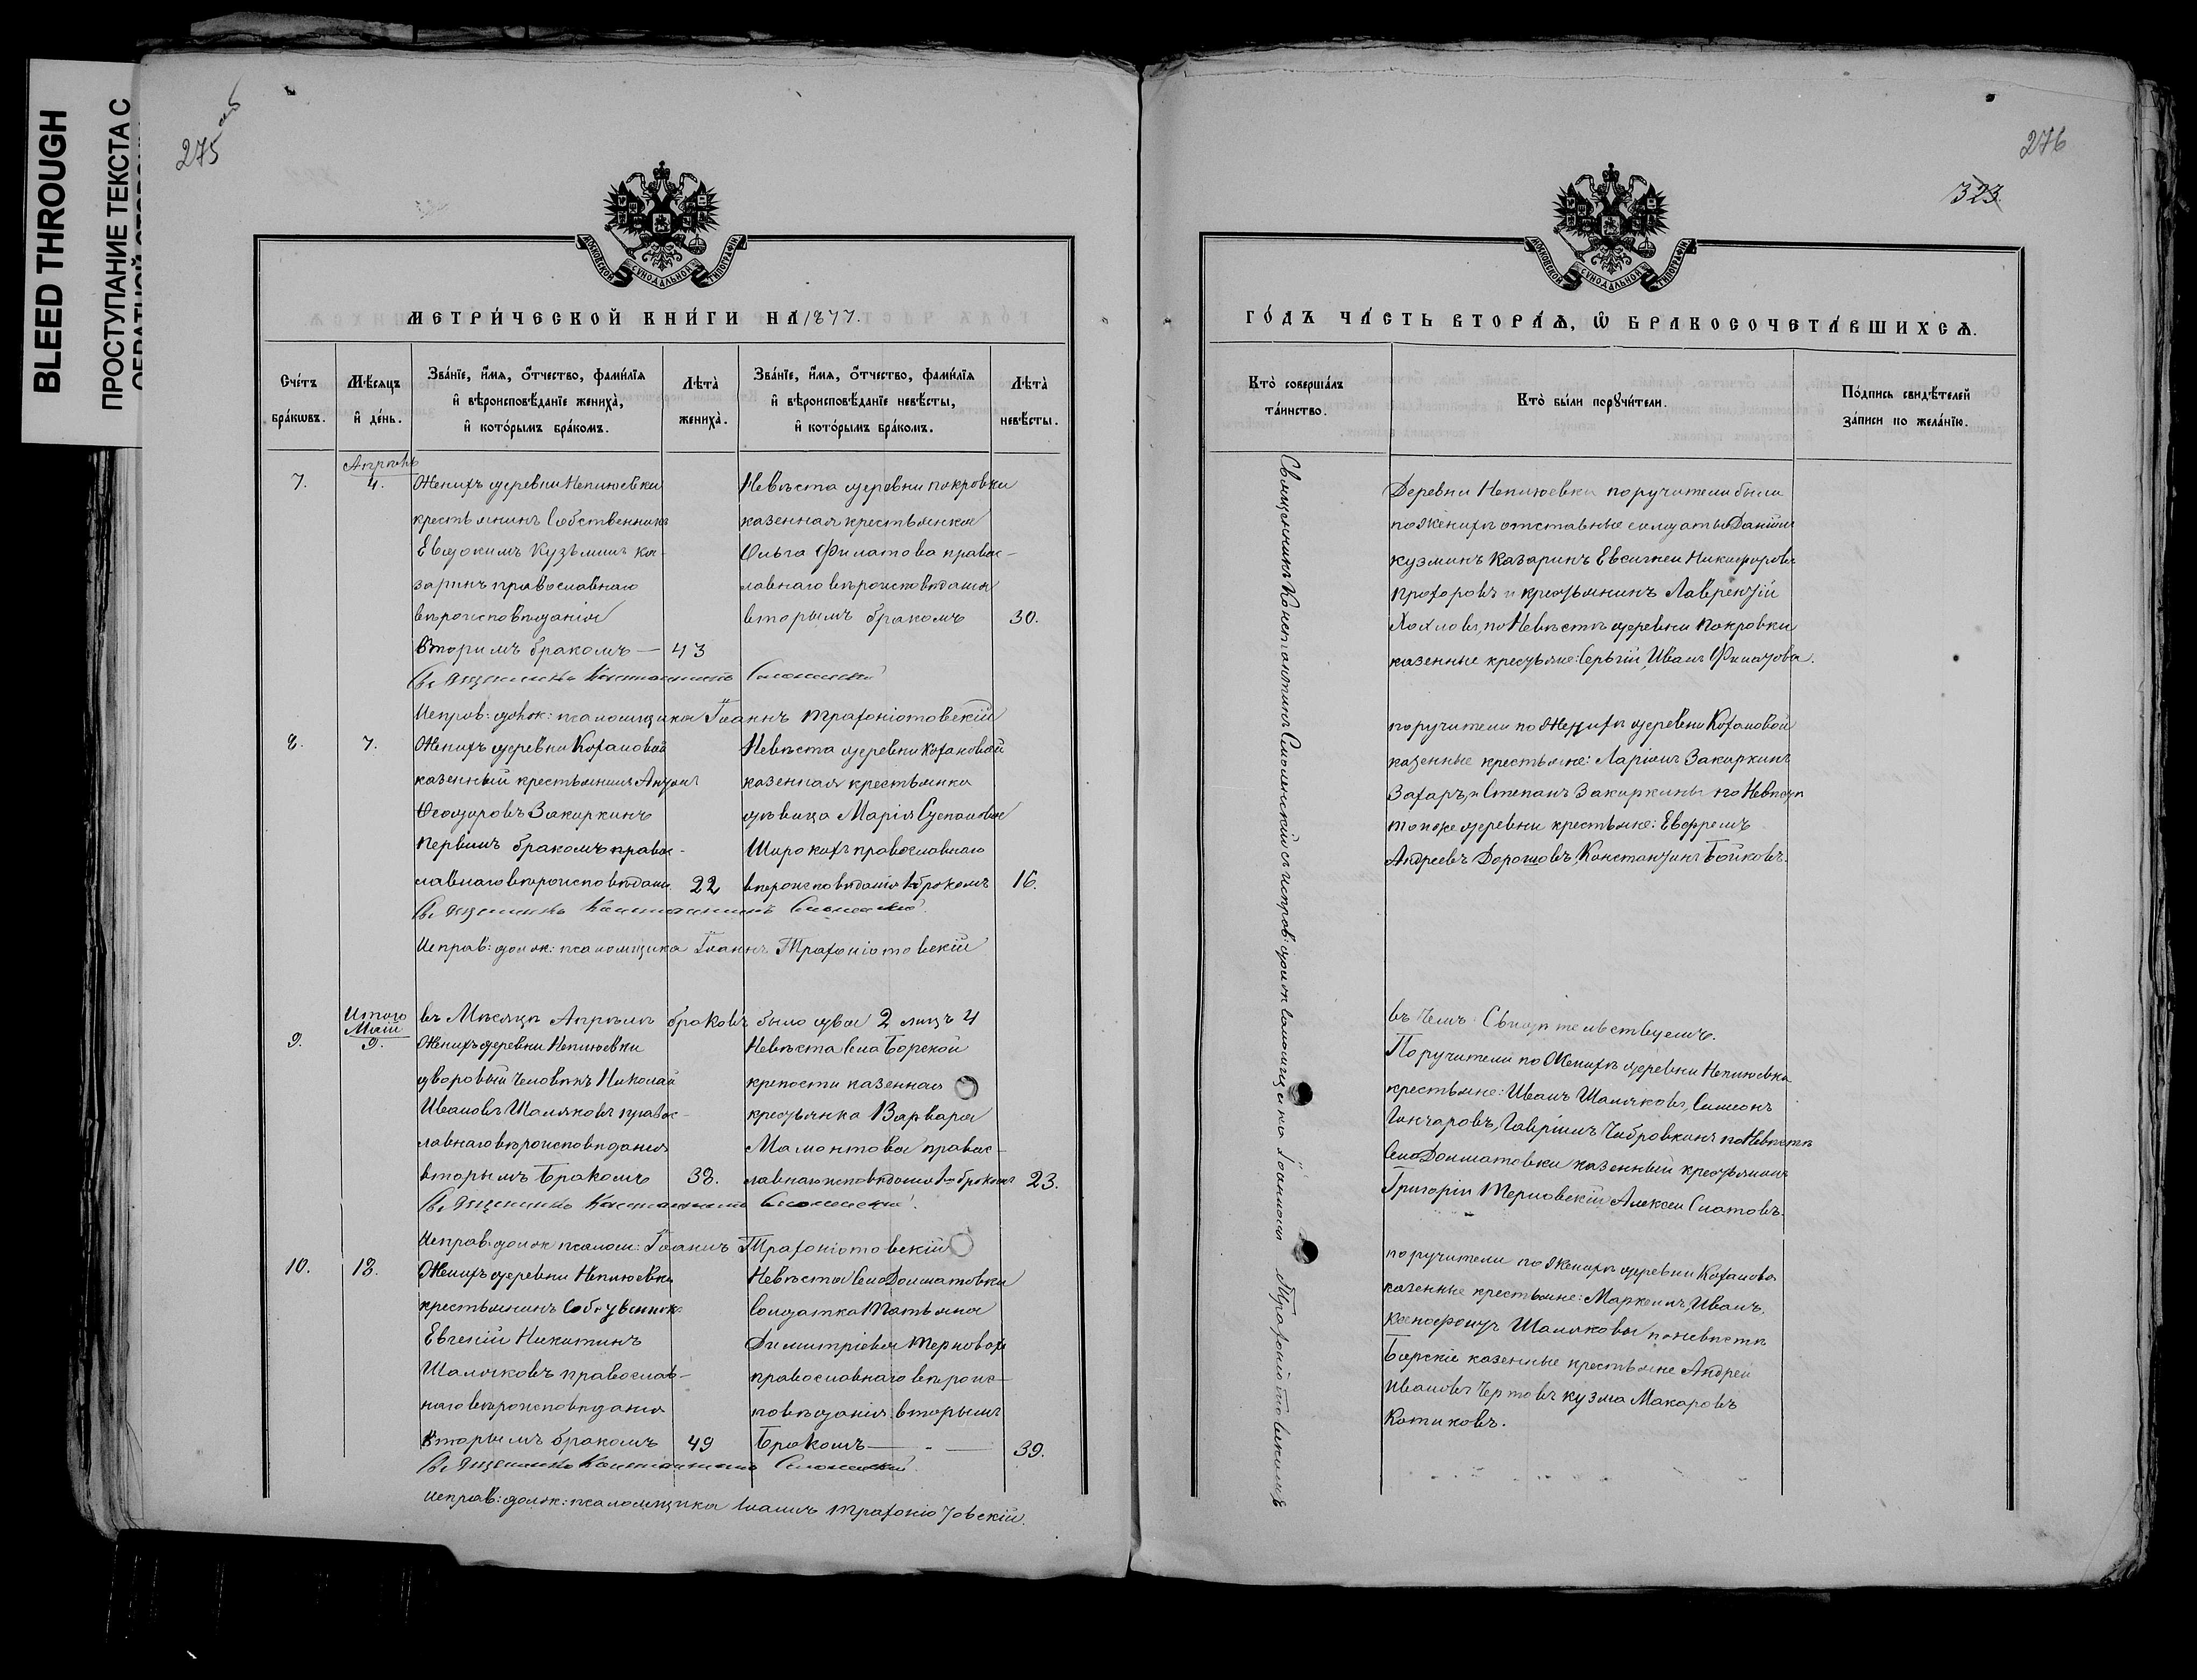 BLEED THROUGH
ПРОСТУПАНИЕ ТЕКСТА С
275 об
276
323
МОСКОВСКОЙ СУНОДАЛЬНОЙ ТИПОГРАФІИ
МЕТРИ́ЧЕСКОЙ КНИ́ГИ НА 1877.
Сче́тъ бра́кѡвъ.
Мѣ́сяцъ и҆ де́нь.
Зва́нїе, и҆́мѧ, ѻ҆́тчество, фами́лїѧ
и҆ вѣроисповѣ́данїе жениха̀,
и҆ кото́рымъ бра́комъ.
Лѣ́та̀ жениха̀.
Зва́нїе, и҆́мѧ, ѻ҆́тчество, фами́лїѧ
и҆ вѣроисповѣ́данїе невѣ́сты,
и҆ кото́рымъ бра́комъ.
Лѣ́та̀ невѣ́сты.
Апрѣль
7.
4.
Женихъ деревни Неплюевки
крестьянинъ Собственникъ
Евдокимъ Кузьминъ Ка-
заринъ православнаго
вѣроисповѣданія
Вторимъ бракомъ — 43
Невѣста деревни Покровки
казенная крестьянка
Ольга Филатова правос-
лавнаго вѣроисповѣданія
вторымъ бракомъ 30.
Священникъ Константинъ Смоленскій
Исправ: долж: псаломщика Іоаннъ Трафоніотовскій
8.
7.
Женихъ деревни Кохановой
казенный крестьянинъ Антонъ
Ѳеодоровъ Закиркинъ
Первымъ бракомъ правос-
лавнаго вѣроисповѣданія 22
Невѣста деревни Кохановой
казенная крестьянка
дѣвица Марія Степанова
Широкихъ православнаго
вѣроисповѣданія 1 бракомъ 16.
Священникъ Константинъ Смоленскій
Исправ: долж: псаломщика Іоаннъ Трафоніотовскій
Итого въ Мѣсяцѣ Апрѣлѣ браковъ было два 2 лицъ 4
Маій
9.
9.
Женихъ деревни Неплюевки
дворовый человѣкъ Николай
Ивановъ Шаляковъ правос-
лавнаго вѣроисповѣданія
вторымъ Бракомъ 38.
Невѣста Села Борской
крепости казенная
крестьянка Варвара
Мамонтова правос-
лавнаго исповѣданія 1 бракомъ 23.
Священникъ Константинъ Смоленскій
Исправ: долж псалом: Іоаннъ Трафоніотовскій
10.
18.
Женихъ деревни Неплюевки
крестьянинъ Собственникъ
Евгеній Никитинъ
Шалячковъ православ-
наго вѣроисповѣданія
Вторымъ бракомъ 49
Невѣста Села Долматовки
Солдатка Татьяна
Димитріева Терновая
православнаго вѣроис-
повѣданія вторымъ
Бракомъ — 39.
Священникъ Константинъ Смоленскій
исправ: долж: псаломщика Іоаннъ Трафоніотовскій.
МОСКОВСКОЙ СУНОДАЛЬНОЙ ТИПОГРАФІИ
ГО́ДЪ ЧА́СТЬ ВТОРА́Ѧ, Ѡ҆ БРАКОСОЧЕТА́ВШИХСѦ.
Кто̀ соверша́лъ та́инство.
Кто̀ бы́ли порꙋчи́тели.
По́дпись свидѣ́телей за́писи по жела́нїю.
Священникъ Константинъ Смоленскій съ исправ: должн псаломщика Іоанномъ Трафоніотовскимъ
Деревни Неплюевки поручители были
по Женихѣ отставные солдаты Даніилъ
кузминъ Казаринъ Евсигнеи Никифоровъ
Прохоровъ и крестьянинъ Лаврентій
Хохловъ, по Невѣстѣ деревни Покровки
казенные крестьяне: Сергій, Иванъ Филатовы.
поручители по Женихѣ деревни Кохановой
казенные крестьяне: Ларіонъ Закиркинъ
Захаръ, и Степанъ Закиркины по Невѣстѣ
тойже деревни крестьяне: Ефремъ
Андреевъ Дорошовъ, Константинъ Бойковъ.
въ Чемъ Свидѣтельствуемъ.
Поручители по Женихѣ деревни Неплюевки
крестьяне: Иванъ Шаляковъ, Симеонъ
Гончаровъ, Гавріилъ Чибровкинъ по Невѣстѣ
Села Долматовки казенный крестьянинъ
Григоріи Терновскій Алексеи Слатовъ.
поручители по Женихѣ деревни Коханова
казенные крестьяне: Маркелъ, Иванъ,
Ксенофонтъ Шаляковы по невѣстѣ
Борскіе казенные крестьяне Андреи
Ивановъ Чертовъ кузма Макаровъ
Котиковъ.